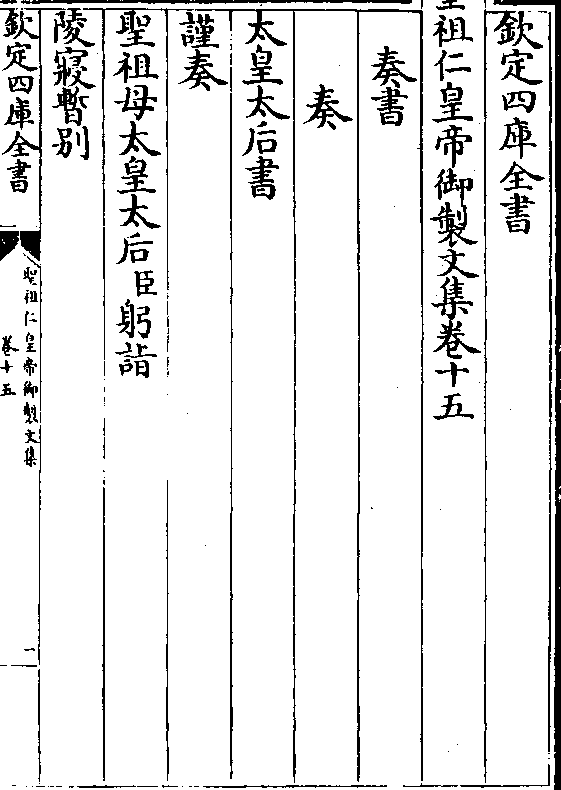 欽定四庫全書
聖祖仁皇帝御製文集卷十五
奏書
奏
太皇太后書
謹奏
聖祖母太皇太后臣躬詣
陵寢暫別
欽定四庫全書
聖祖仁皇帝御製文集
卷十五
一